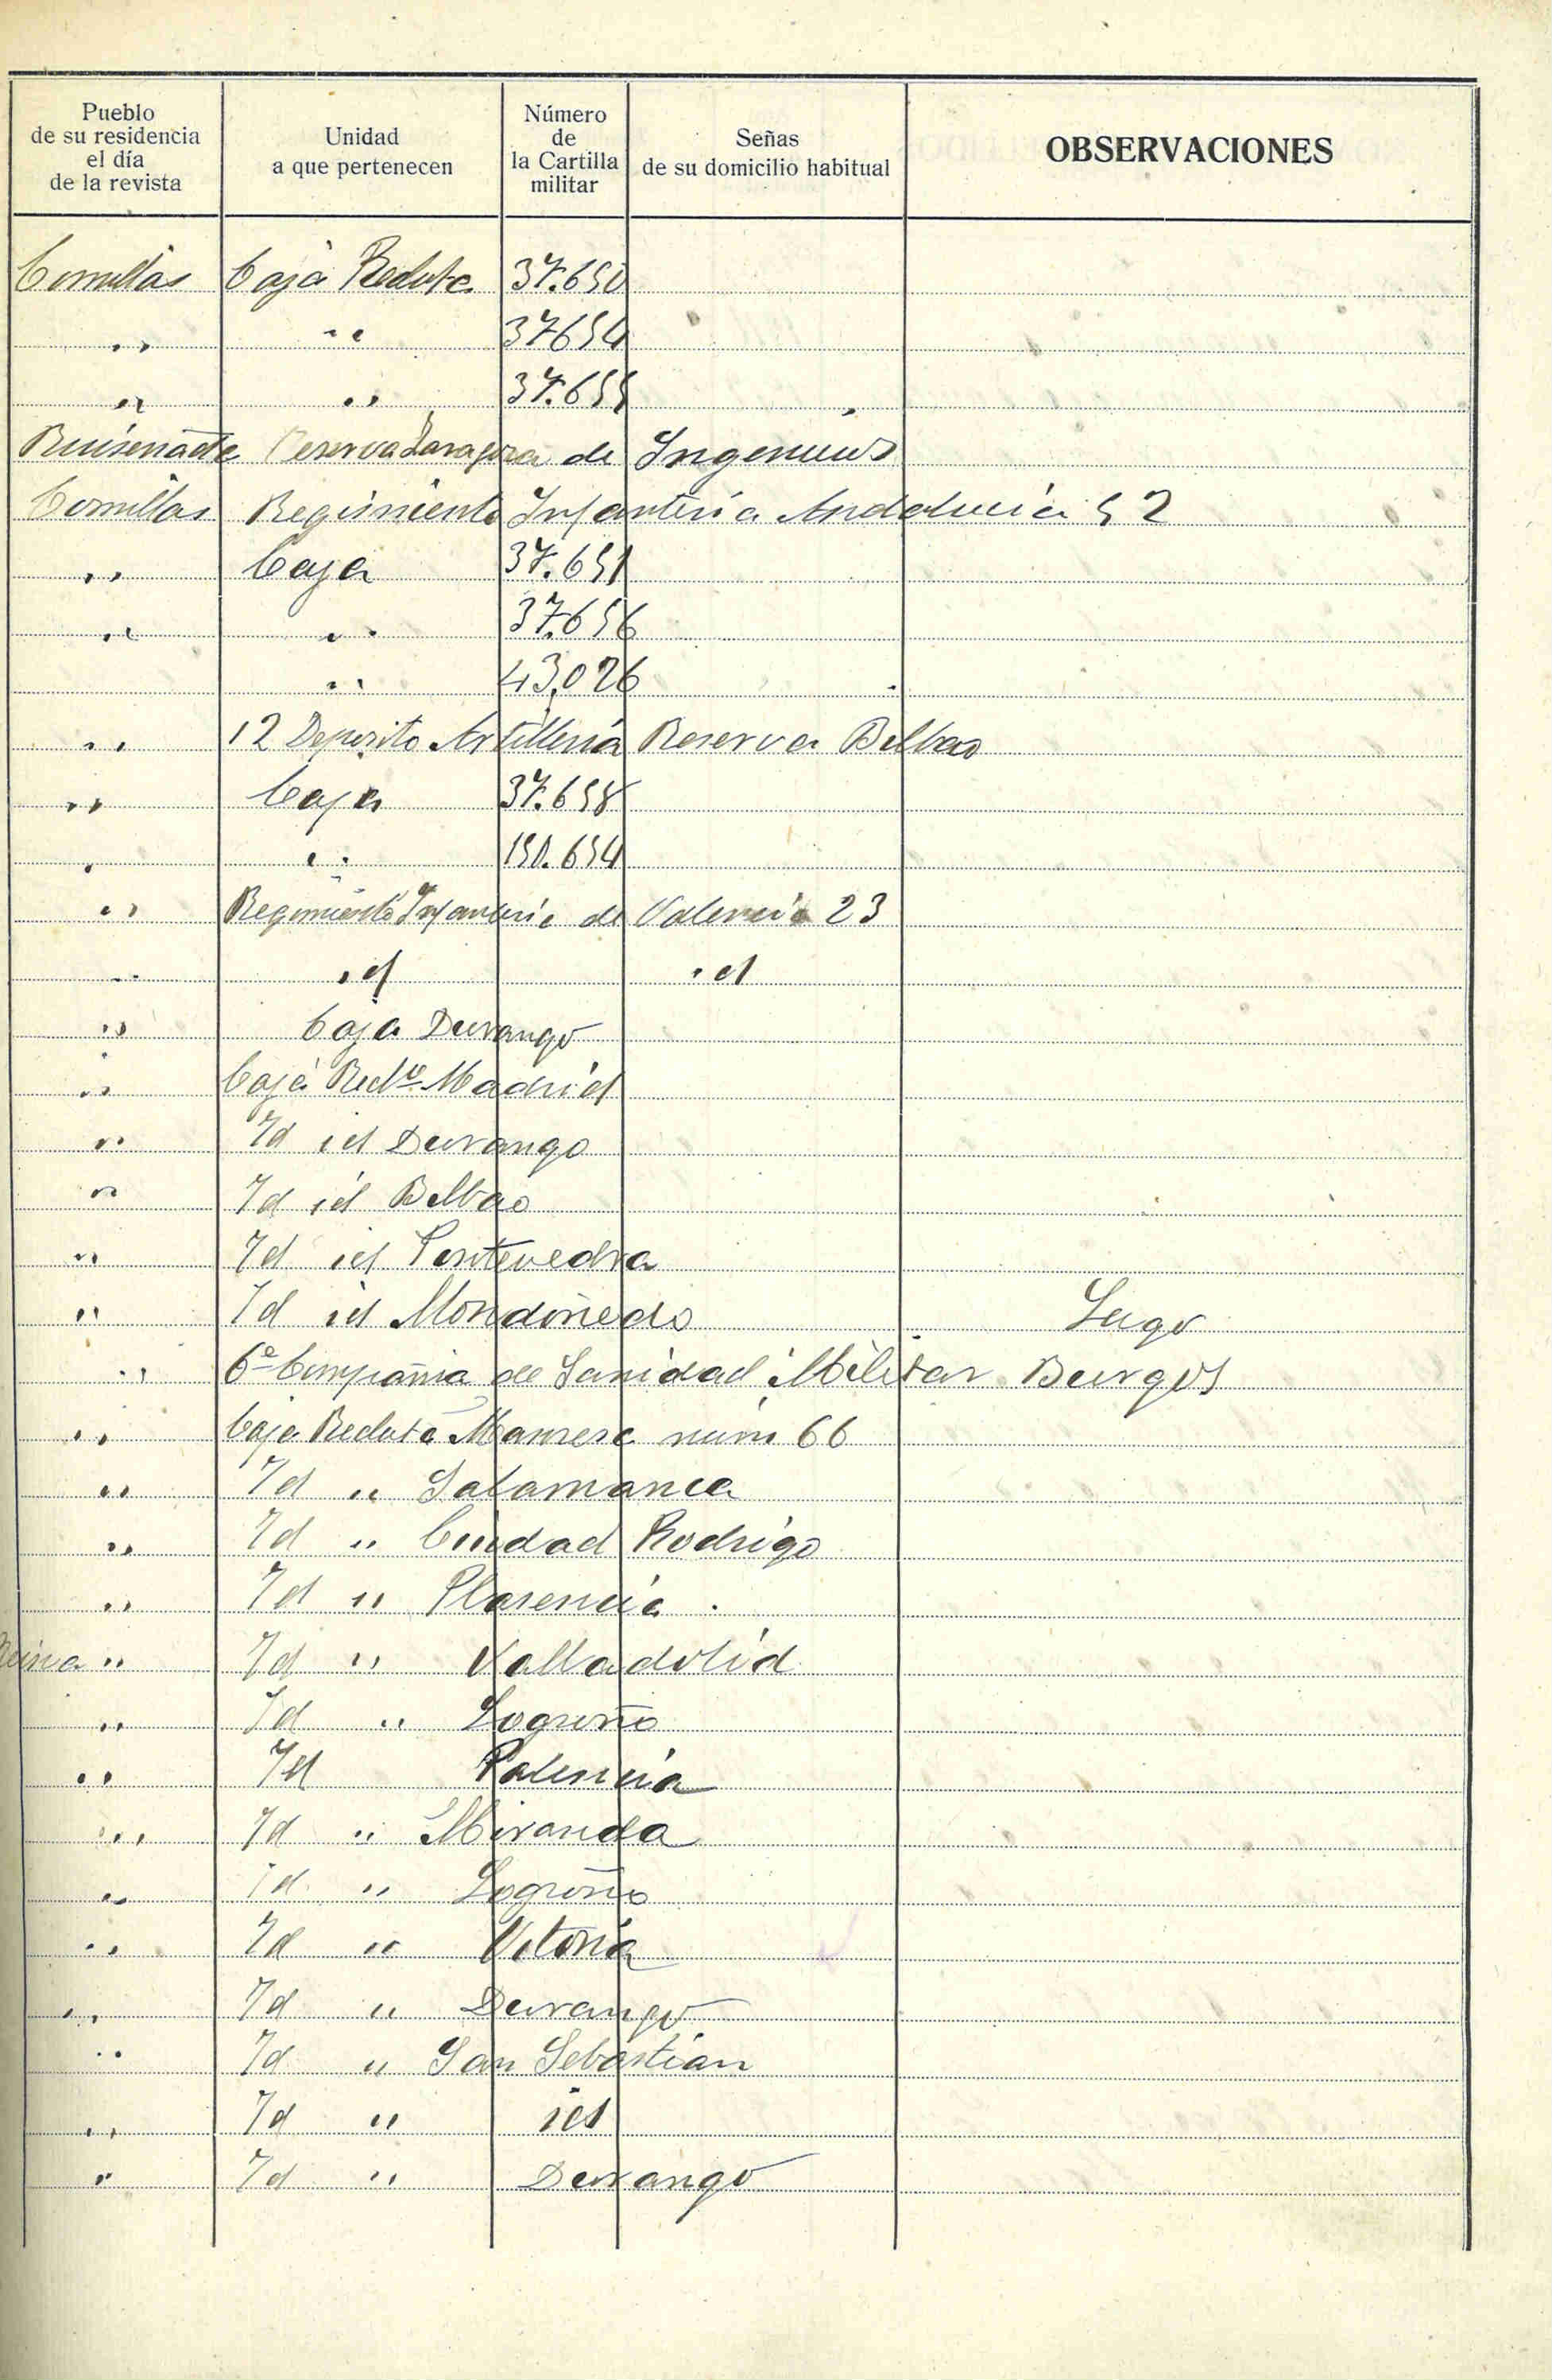 Pueblo de su residencia el día de la revista | Unidad a que pertenecen | Número de la Cartilla militar | Señas de su domicilio habitual | OBSERVACIONES
Comillas Caja Recluta 37.650
" " 37654
" " 37.655
Ruiseñada Reserva Zaragoza de Ingenieros
Comillas Regimiento Infantería Andalucia 52
" Caja 37.651
" " 37.656
" 43,026
" 12 Deposito Artilleria Reserva Bilbao
" Caja 37.658
" " 150.654
" Regimiento Infanteria de Valencia 23
" id id
" Caja Durango
" Caja Recta Madrid
" Id id Durango
" Id id Bilbao
" Id id Pontevedra
" Id id Mondoñedo Lugo
" 6ª Compañia de Sanidad Militar Burgos
" Caja Recluta Manresa núm 66
" Id " Salamanca
" Id " Ciudad Rodrigo
" Id " Plasencia
" Id " Valladolid
" Id " Logroño
" Id Palencia
" Id " Miranda
" Id " Logroño
" Id " Vitoria
" Id " Durango
" Id " San Sebastian
" Id " id
" Id " Durango